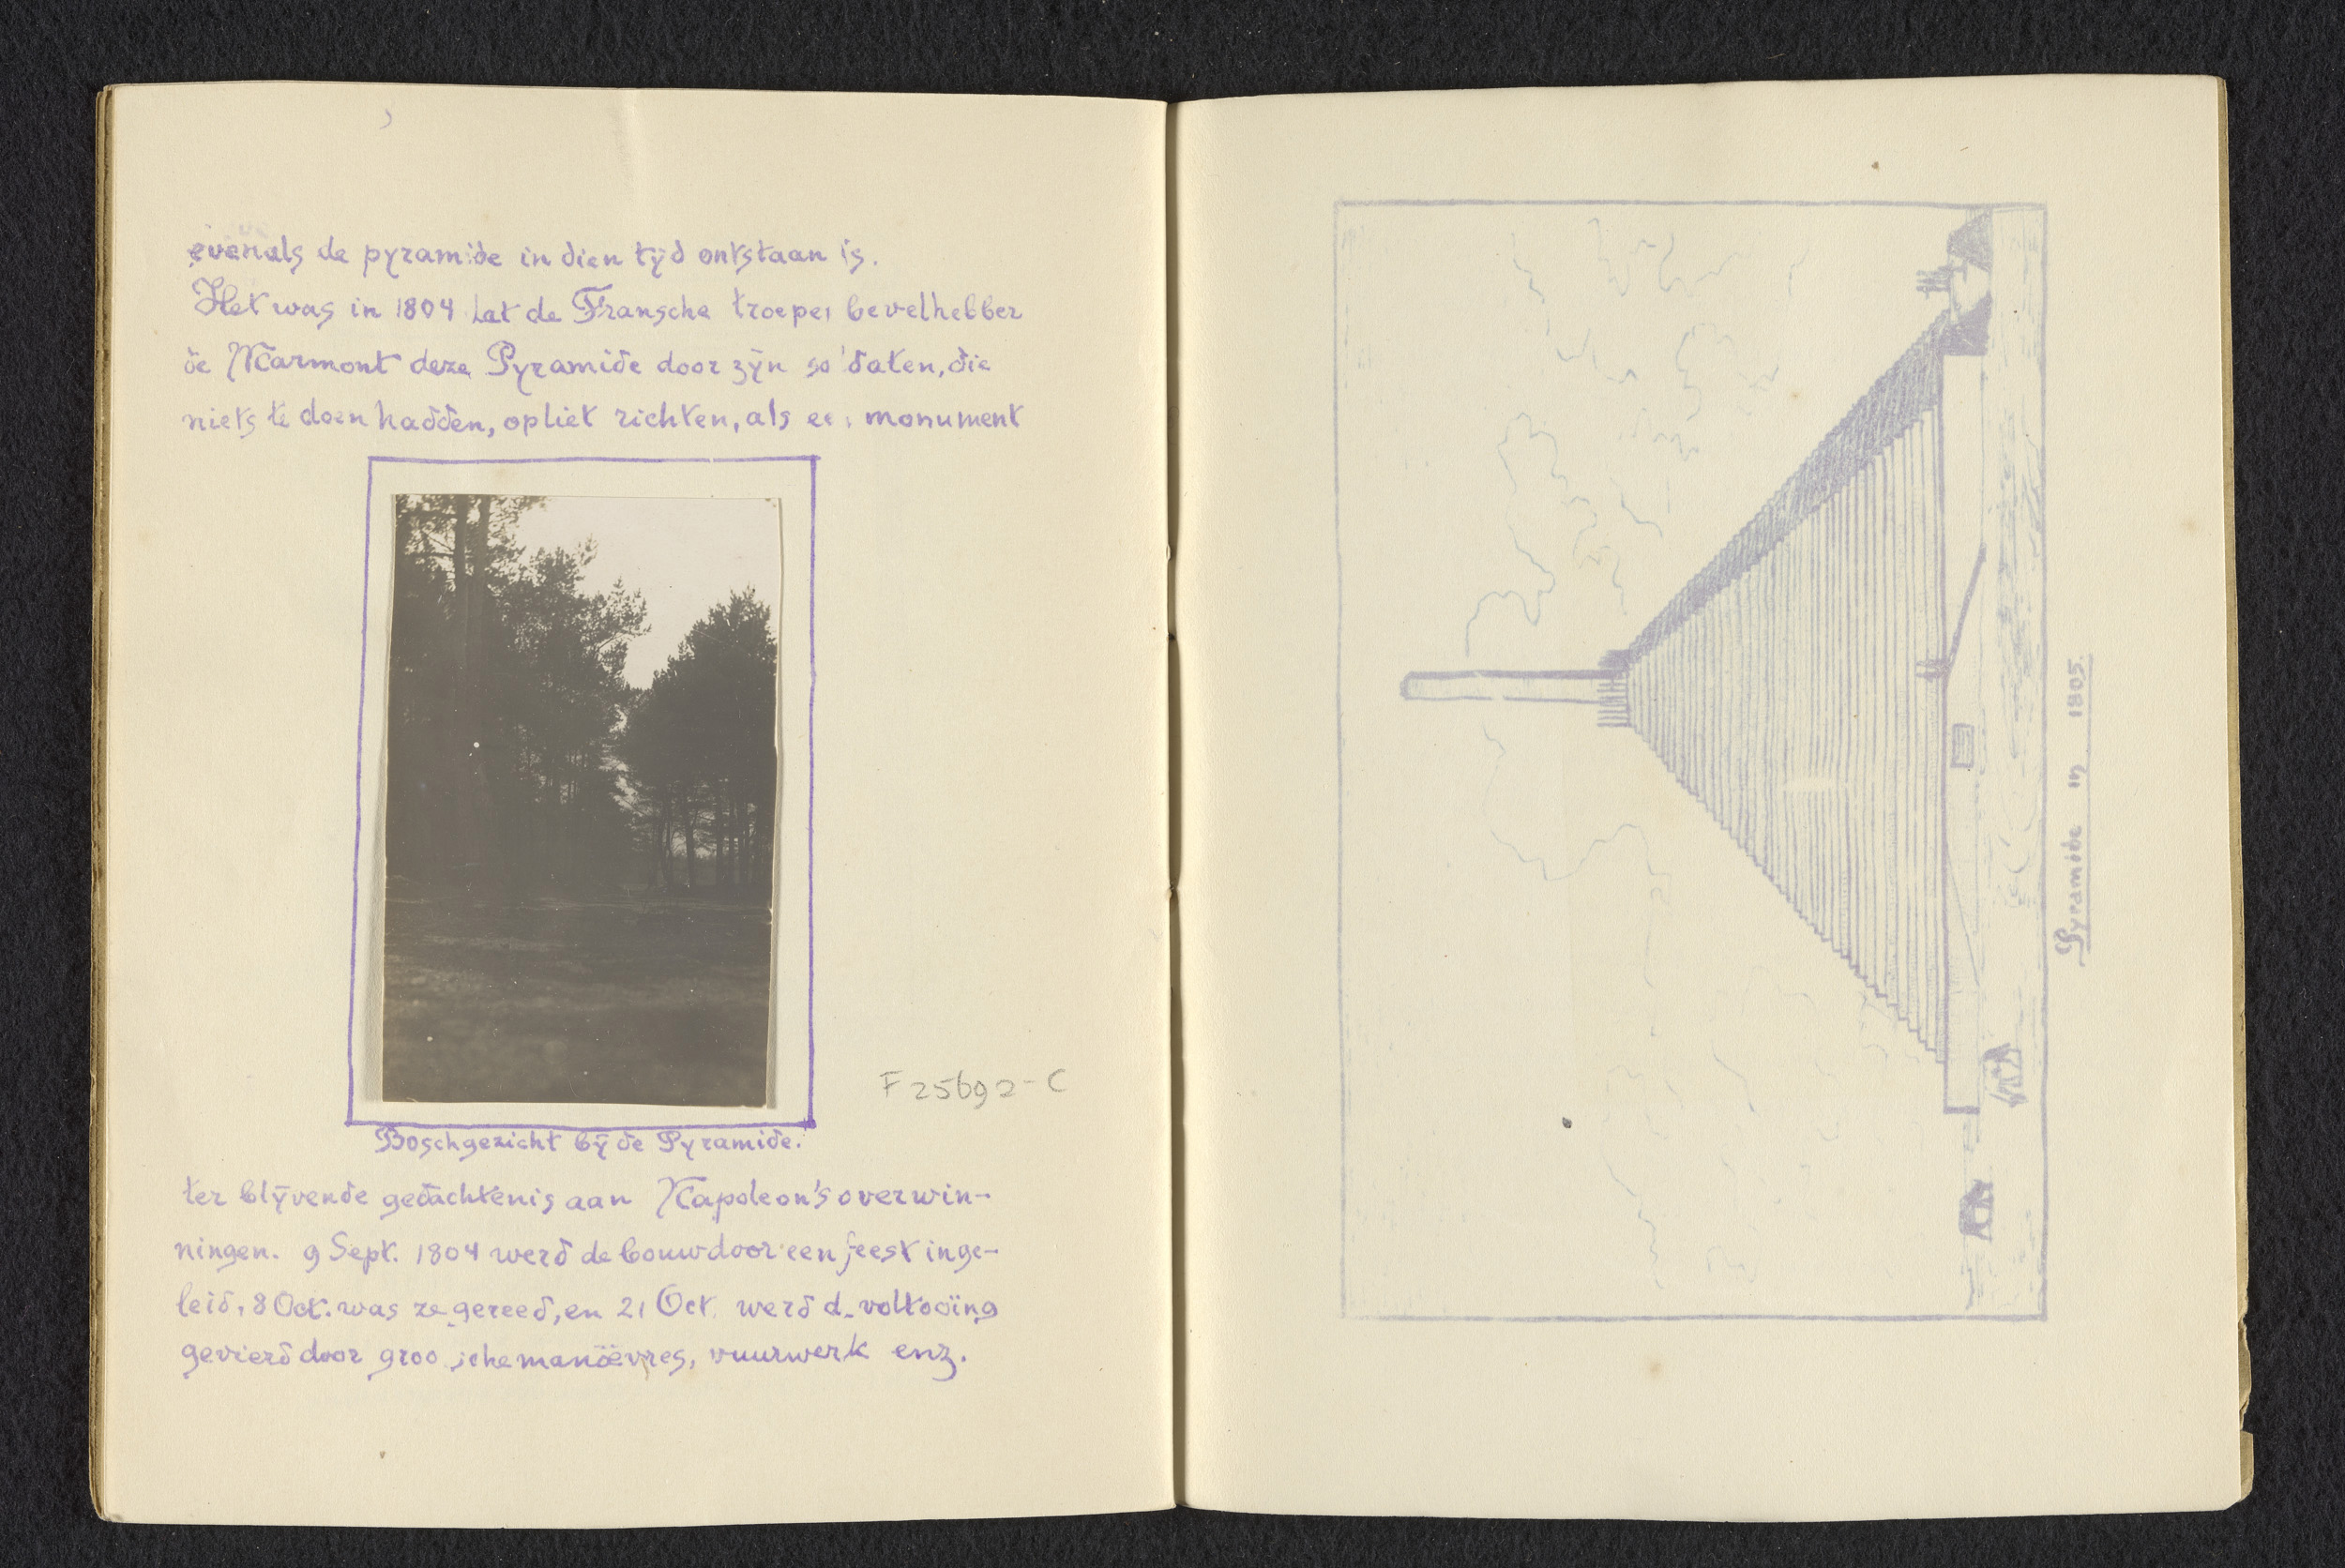 evenals de pyramide in dien tijd ontstaan is.
Het was in 1804 dat de Fransche troepen bevelhebber
de Marmont deze Pyramide door zijn soldaten, die
niets te doen hadden, opliet richten, als een monument
F 25692-C
Boschgezicht bij de Pyramide.
ter blijvende gedachtenis aan Napoleon's overwin-
ningen. 9 Sept. 1804 werd de bouw door een feest inge-
leid, 8 Oct. was ze gereed, en 21 Oct. werd de voltooïing
gevierd door groo sche manöevres, vuurwerk enz.
Pyramide in 1805.